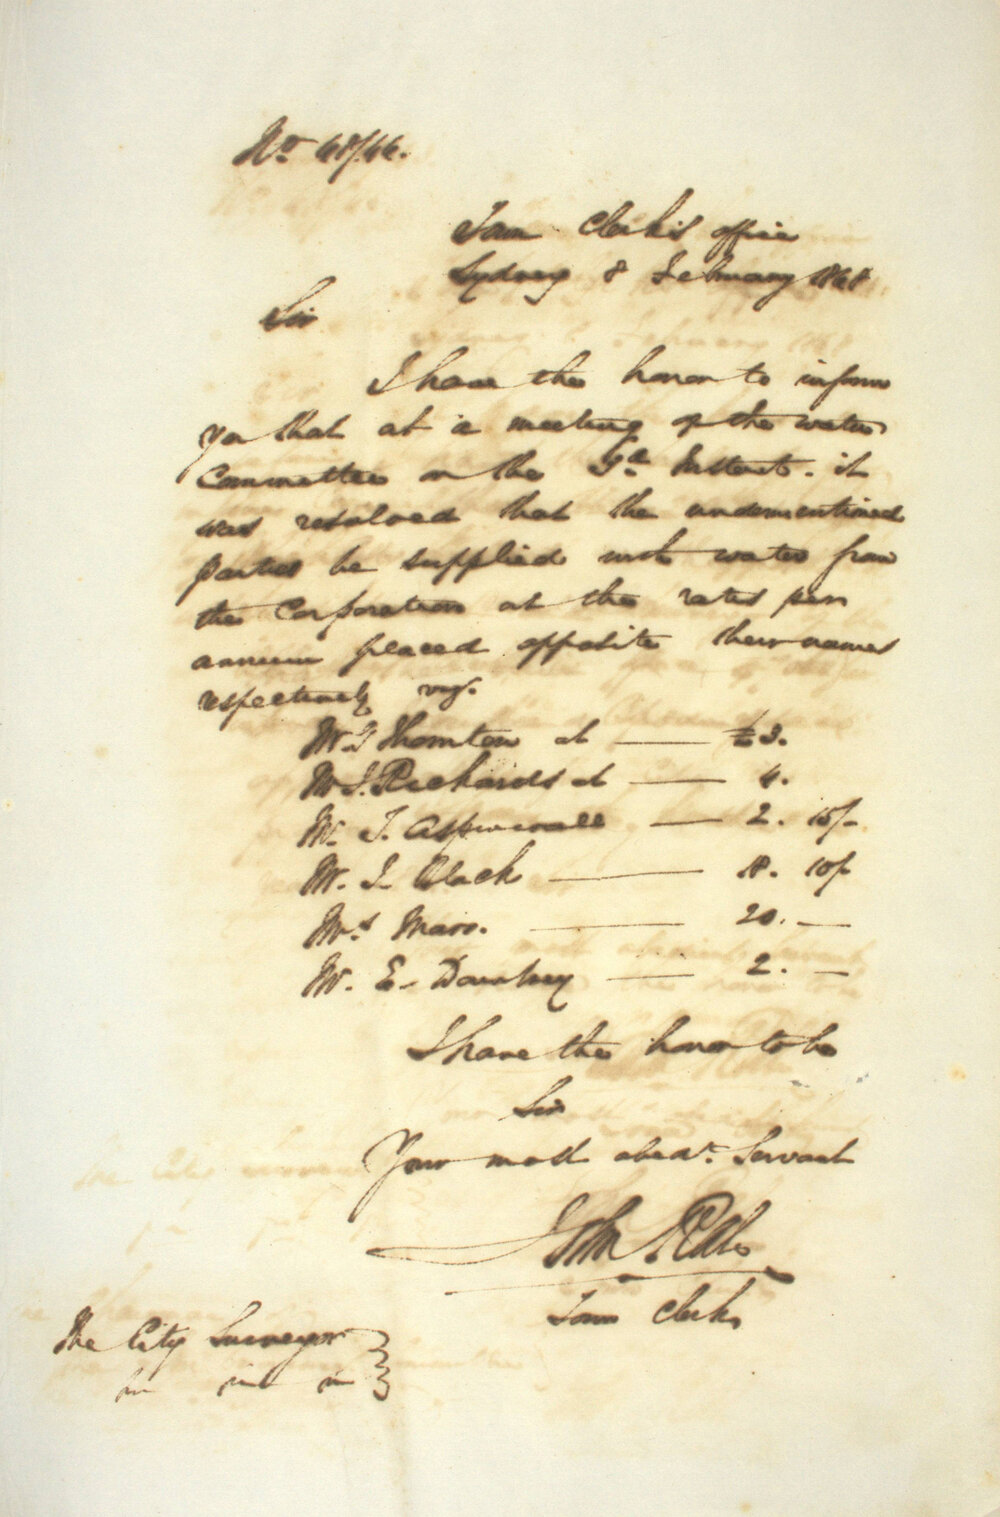 Town Clerk's office
Sydney 8 February 1868
Sir
I have the honor to inform
you that at a meeting of the water
Committee on the Instant. it
was resolved that the undermentioned
parties be supplied with water from
the Corporation at the rates per
annum placed opposite their names
respectively viz.
Mr J Thornton at — £3.
Mr J. Richards at — 4.
Mr. J. Aspinwall — 2. 10/-
Mr. J. Black — 18. 10/-
Mrs Mars. — 20. —
Mr. E. — 2. —
I have the honor to be
Sir
Your most obedt. Servant
John
Town Clerk
The City Surveyor